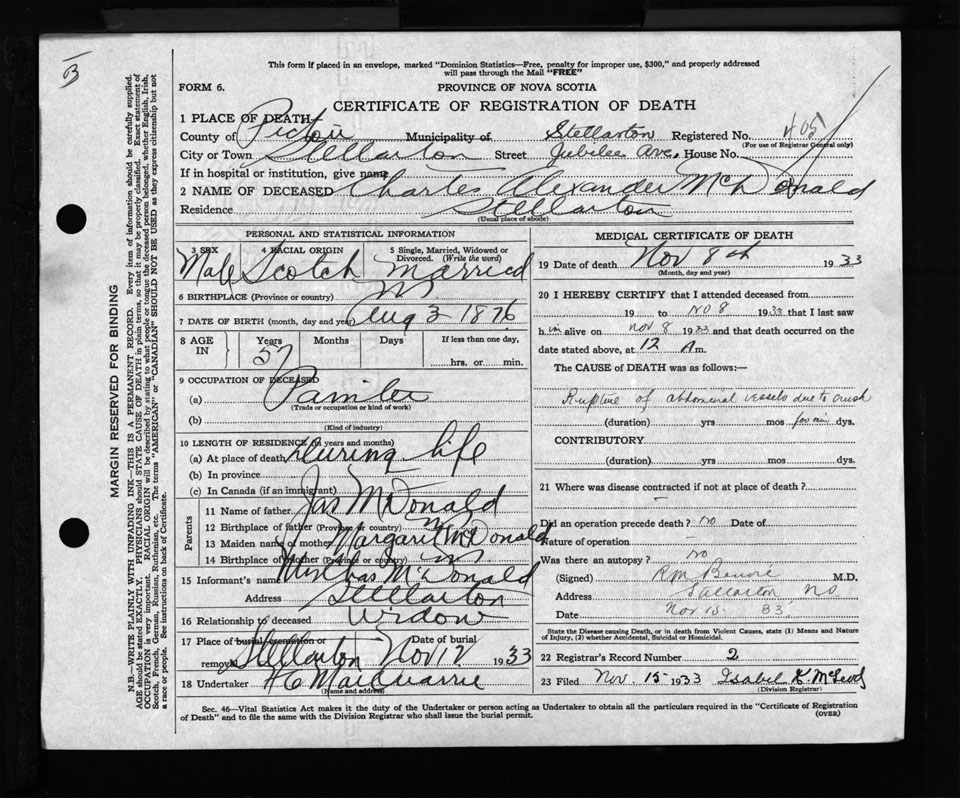 B
This form if placed in an envelope, marked "Dominion Statistics—Free, penalty for improper use, $300," and properly addressed
will pass through the Mail "FREE"
FORM 6.
PROVINCE OF NOVA SCOTIA
CERTIFICATE OF REGISTRATION OF DEATH
1 PLACE OF DEATH
County of Pictou Municipality of Stellarton Registered No. 405
(For use of Registrar General only)
City or Town Stellarton Street Jubilee Ave. House No.
If in hospital or institution, give name
2 NAME OF DECEASED Charles Alexander McDonald
Residence Stellarton
(Usual place of abode)
MARGIN RESERVED FOR BINDING
N.B.—WRITE PLAINLY WITH UNFADING INK—THIS IS A PERMANENT RECORD. Every item of information should be carefully supplied.
AGE should be stated EXACTLY. PHYSICIANS should STATE CAUSE OF DEATH in plain terms, so that it may be properly classified. Exact statement of
OCCUPATION is very important. RACIAL ORIGIN will be described by stating to what people or tongue the deceased person belonged, whether English, Irish,
Scotch, French, German, Russian, Ruthenian, etc. The terms "AMERICAN" or "CANADIAN" SHOULD NOT BE USED as they express citizenship but not
a race or people. See instructions on back of Certificate.
PERSONAL AND STATISTICAL INFORMATION
3 SEX 4 RACIAL ORIGIN 5 Single, Married, Widowed or
Divorced. (Write the word)
Male Scotch Married
6 BIRTHPLACE (Province or country)
7 DATE OF BIRTH (month, day and year) Aug 3 1876
8 AGE IN Years Months Days If less than one day,
57 hrs. or min.
9 OCCUPATION OF DECEASED
(a) Painter
(Trade or occupation or kind of work)
(b)
(Kind of industry)
10 LENGTH OF RESIDENCE (in years and months)
(a) At place of death during life
(b) In province
(c) In Canada (if an immigrant)
Parents
11 Name of father Jas McDonald
12 Birthplace of father (Province or country)
13 Maiden name of mother Margaret McDonald
14 Birthplace of mother (Province or country)
15 Informant's name Mrs Chas McDonald
Address Stellarton
16 Relationship to deceased Widow
17 Place of burial, cremation or Date of burial
removal Stellarton Nov 12 1933
18 Undertaker
(Name and address)
MEDICAL CERTIFICATE OF DEATH
19 Date of death Nov 8th 1933
(Month, day and year)
20 I HEREBY CERTIFY that I attended deceased from
19 to No 8 1933 that I last saw
him alive on Nov 8 1933 and that death occurred on the
date stated above, at 12 A m.
The CAUSE of DEATH was as follows:—
Rupture of abdominal vessels due to crush
(duration) yrs mos few min dys.
CONTRIBUTORY
(duration) yrs mos dys.
21 Where was disease contracted if not at place of death?
Did an operation precede death? no Date of
Nature of operation
Was there an autopsy? No
(Signed) M.D.
Address Stellarton
Date Nov 15 33
State the Disease causing Death, or in death from Violent Causes, state (1) Means and Nature
of Injury, (2) whether Accidental, Suicidal or Homicidal.
22 Registrar's Record Number 2
23 Filed Nov. 15 1933 Isabel K. McLeod
(Division Registrar)
Sec. 46—Vital Statistics Act makes it the duty of the Undertaker or person acting as Undertaker to obtain all the particulars required in the "Certificate of Registration
of Death" and to file the same with the Division Registrar who shall issue the burial permit.
(OVER)